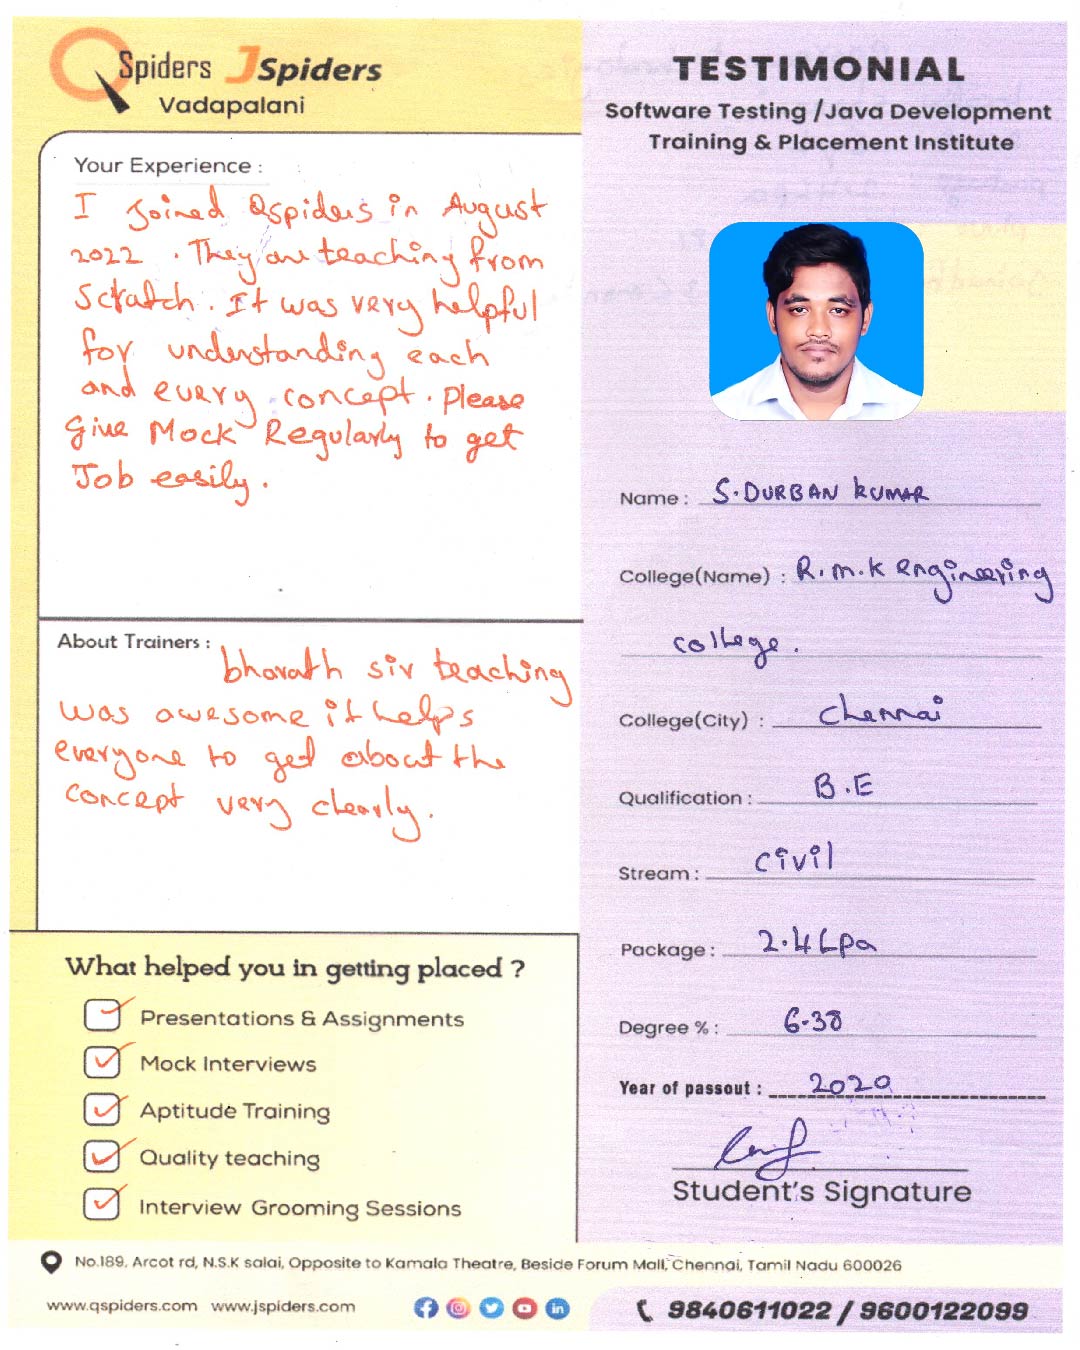 QSpiders JSpiders
Vadapalani
Your Experience :
I Joined Qspiders in August
2022 . They are teaching from
Scratch . It was very helpful
for understanding each
and every concept . Please
Give Mock Regularly to get
Job easily .
About Trainers :
bharath sir teaching
was awesome it helps
everyone to get about the
concept very clearly .
What helped you in getting placed ?
Presentations & Assignments
Mock Interviews
Aptitude Training
Quality teaching
Interview Grooming Sessions
TESTIMONIAL
Software Testing /Java Development
Training & Placement Institute
Name : S. DURBAN KUMAR
College(Name) : R.M.K Engineering
college .
College(City) : Chennai
Qualification : B.E
Stream : Civil
Package : 2.4 Lpa
Degree % : 6.38
Year of passout : 2020
Student's Signature
No.189, Arcot rd, N.S.K salai, Opposite to Kamala Theatre, Beside Forum Mall, Chennai, Tamil Nadu 600026
www.qspiders.com www.jspiders.com
9840611022 / 9600122099